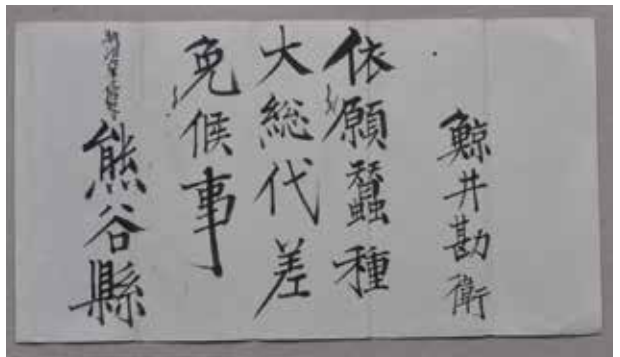 鯨井勘衛
依願蠶種
大総代差
免候事
熊谷縣